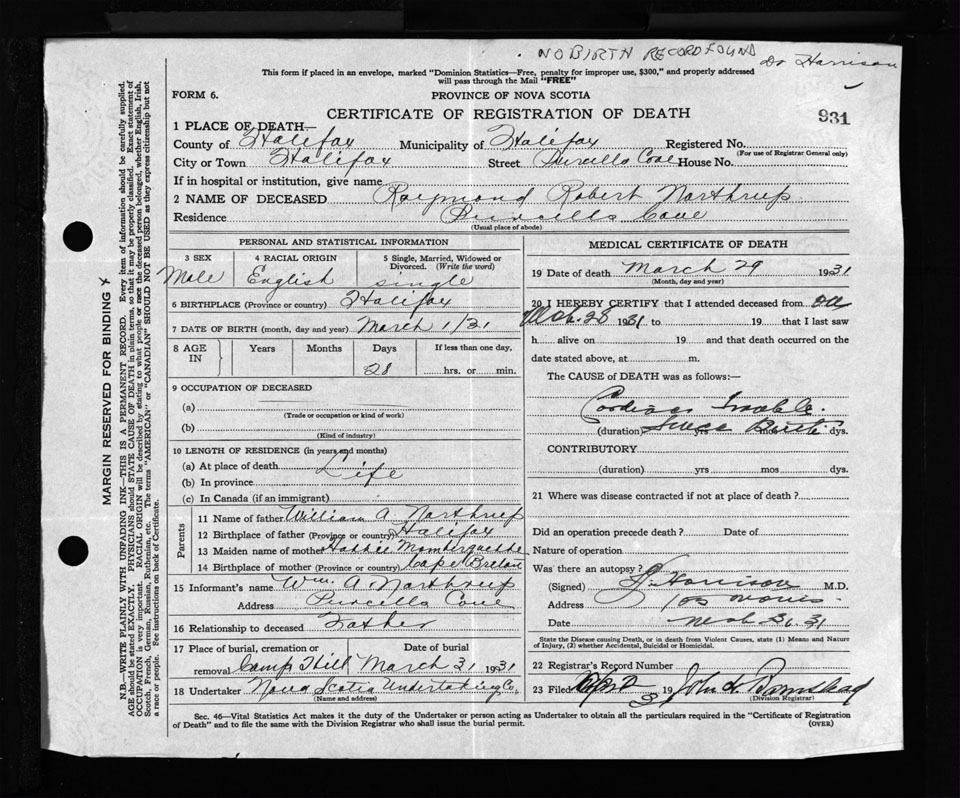 NO BIRTH RECORD FOUND
Dr Harrison
This form if placed in an envelope, marked "Dominion Statistics—Free, penalty for improper use, $300," and properly addressed
will pass through the Mail "FREE"
FORM 6. PROVINCE OF NOVA SCOTIA
CERTIFICATE OF REGISTRATION OF DEATH 931
1 PLACE OF DEATH—
County of Halifax Municipality of Halifax Registered No.
(For use of Registrar General only)
City or Town Halifax Street Purcells Cove House No.
If in hospital or institution, give name
2 NAME OF DECEASED Raymond Robert Northrup
Residence Purcells Cove
(Usual place of abode)
PERSONAL AND STATISTICAL INFORMATION
3 SEX 4 RACIAL ORIGIN 5 Single, Married, Widowed or
Divorced. (Write the word)
Male English single
6 BIRTHPLACE (Province or country) Halifax
7 DATE OF BIRTH (month, day and year) March 1/31
8 AGE IN Years Months Days If less than one day,
28 hrs. or min.
9 OCCUPATION OF DECEASED
(a)
(Trade or occupation or kind of work)
(b)
(Kind of industry)
10 LENGTH OF RESIDENCE (in years and months)
(a) At place of death Life
(b) In province
(c) In Canada (if an immigrant)
Parents
11 Name of father William A. Northrup
12 Birthplace of father (Province or country) Halifax
13 Maiden name of mother
14 Birthplace of mother (Province or country) Cape Breton
15 Informant's name Wm. A. Northrup
Address Purcells Cove
16 Relationship to deceased Father
17 Place of burial, cremation or Date of burial
removal Camp Hill March 31 1931
18 Undertaker Nova Scotia Undertaking Co.
(Name and address)
MEDICAL CERTIFICATE OF DEATH
19 Date of death March 29 1931
(Month, day and year)
20 I HEREBY CERTIFY that I attended deceased from on
Mch. 28 1931 to 19 that I last saw
h alive on 19 and that death occurred on the
date stated above, at m.
The CAUSE OF DEATH was as follows:—
Cardiac Trouble.
(duration) Since Birth yrs mos dys.
CONTRIBUTORY
(duration) yrs mos dys.
21 Where was disease contracted if not at place of death?
Did an operation precede death? Date of
Nature of operation
Was there an autopsy?
(Signed) Harrison M.D.
Address 105 Morris
Date Mch 30. 31
State the Disease causing Death, or in death from Violent Causes, state (1) Means and Nature
of Injury, (2) whether Accidental, Suicidal or Homicidal.
22 Registrar's Record Number
23 Filed Apr 2 1931
(Division Registrar)
Sec. 46—Vital Statistics Act makes it the duty of the Undertaker or person acting as Undertaker to obtain all the particulars required in the "Certificate of Registration
of Death" and to file the same with the Division Registrar who shall issue the burial permit. (OVER)
MARGIN RESERVED FOR BINDING
N.B.—WRITE PLAINLY WITH UNFADING INK—THIS IS A PERMANENT RECORD. Every item of information should be carefully supplied.
AGE should be stated EXACTLY. PHYSICIANS should STATE CAUSE OF DEATH in plain terms, so that it may be properly classified. Exact statement of
OCCUPATION is very important. RACIAL ORIGIN will be described by stating to what people or race the deceased person belonged, whether English, Irish,
Scotch, French, German, Russian, Ruthenian, etc. The terms "AMERICAN" or "CANADIAN" SHOULD NOT BE USED as they express citizenship but not
a race or people. See instructions on back of Certificate.